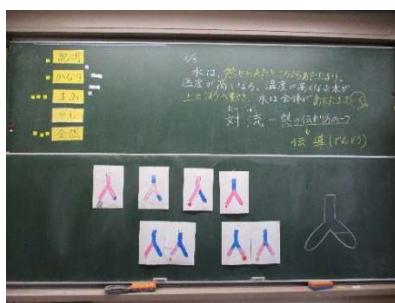 説明
かなり
まあ
少し
全然
1/5
水は、熱せられたところからあたたまり、
温度が高くなる。温度が高くなった水が
上の方へ動き、水は全体があたたまる。
たい りゅう
対流－熱の伝わり方の一つ
伝導(でんどう)